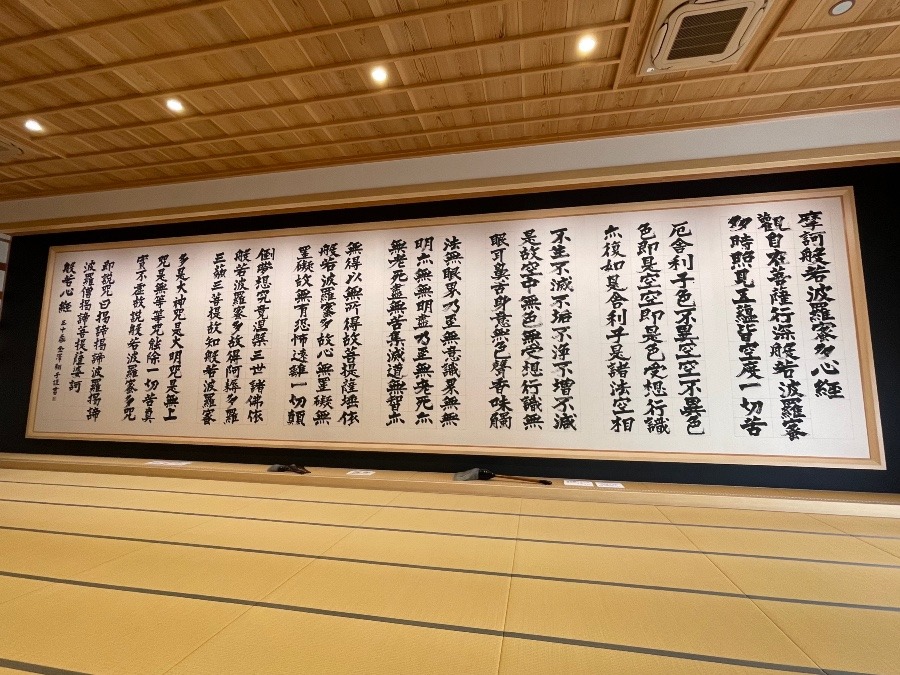 摩訶般若波羅蜜多心経
觀自在菩薩行深般若波羅蜜
多時照見五蘊皆空度一切苦
厄舍利子色不異空空不異色
色即是空空即是色受想行識
亦復如是舍利子是諸法空相
不生不滅不垢不淨不增不減
是故空中無色無受想行識無
眼耳鼻舌身意無色聲香味觸
法無眼界乃至無意識界無無
明亦無無明盡乃至無老死亦
無老死盡無苦集滅道無智亦
無得以無所得故菩提薩埵依
般若波羅蜜多故心無罣礙無
罣礙故無有恐怖遠離一切顛
倒夢想究竟涅槃三世諸佛依
般若波羅蜜多故得阿耨多羅
三藐三菩提故知般若波羅蜜
多是大神咒是大明咒是無上
咒是無等等咒能除一切苦真
實不虛故說般若波羅蜜多咒
即說咒曰揭諦揭諦波羅揭諦
波羅僧揭諦菩提薩婆訶
般若心経 金澤翔子